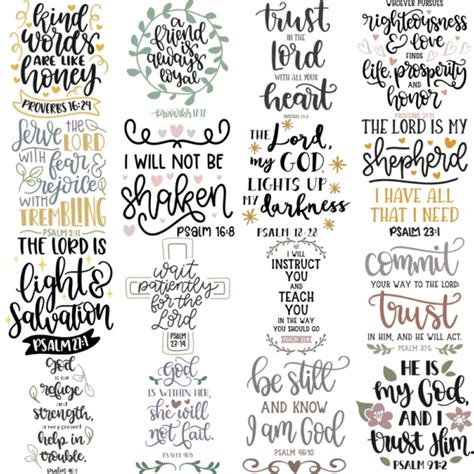 kind
words
ARE LIKE
honey
PROVERBS 16:24
a
friend
is
always
loyal
Proverbs 17:17
trust
IN THE
Lord
WITH ALL
your
heart
WHOEVER PURSUES
righteousness
& love
FINDS
life, prosperity
and
honor
PROVERBS 21:21
Serve THE
LORD
WITH fear &
rejoice
WITH
TREMBLING
PSALM 2:11
I WILL NOT BE
shaken
PSALM 16:8
THE Lord,
my GOD,
LIGHTS UP
MY darkness
PSALM 18:28
THE LORD IS MY
shepherd
I HAVE ALL
THAT I NEED
PSALM 23:1
THE LORD IS
my
light &
Salvation
PSALM 27:1
wait
patiently
for the
Lord
PSALM
27:14
I WILL
INSTRUCT
YOU
AND
TEACH
YOU
IN THE WAY
YOU SHOULD
GO
PSALM 32:8
commit
YOUR WAY TO THE LORD;
trust
IN HIM, AND HE WILL ACT.
PSALM 37:5
God
is our
refuge
and
strength,
a very present
help in
trouble.
PSALM 46:1
God
IS WITHIN HER,
she will
not
fall.
PSALM 46:5
be still
AND KNOW
I am God
PSALM 46:10
HE IS
my God,
AND I
trust Him
PSALM 91:2